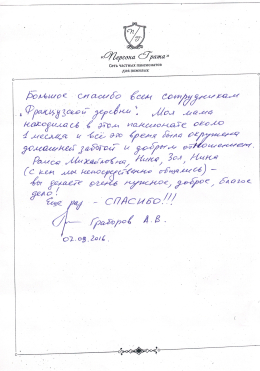 «Персона Грата»
Сеть частных пансионатов
для пожилых
Большое спасибо всем сотрудникам
„Французской деревни“. Моя мама
находилась в этом пансионате около
1 месяца и всё это время была окружена
домашней заботой и добрым отношением.
Раиса Михайловна, Нина, Зоя, Нина
(с кем мы непосредственно общались) –
вы делаете очень нужное, доброе, благое
дело!
Ещё раз – СПАСИБО!!!
А.В.
02.09.2016.